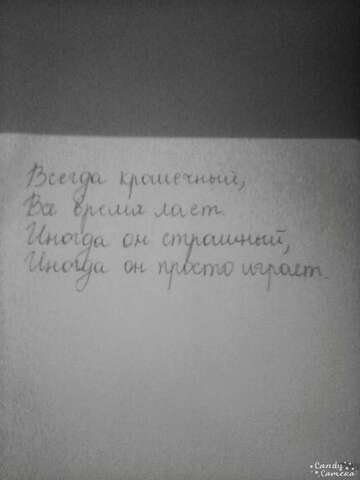 Всегда крошечный,
Все время лает.
Иногда он страшный,
Иногда он просто играет.
Candy
Camera